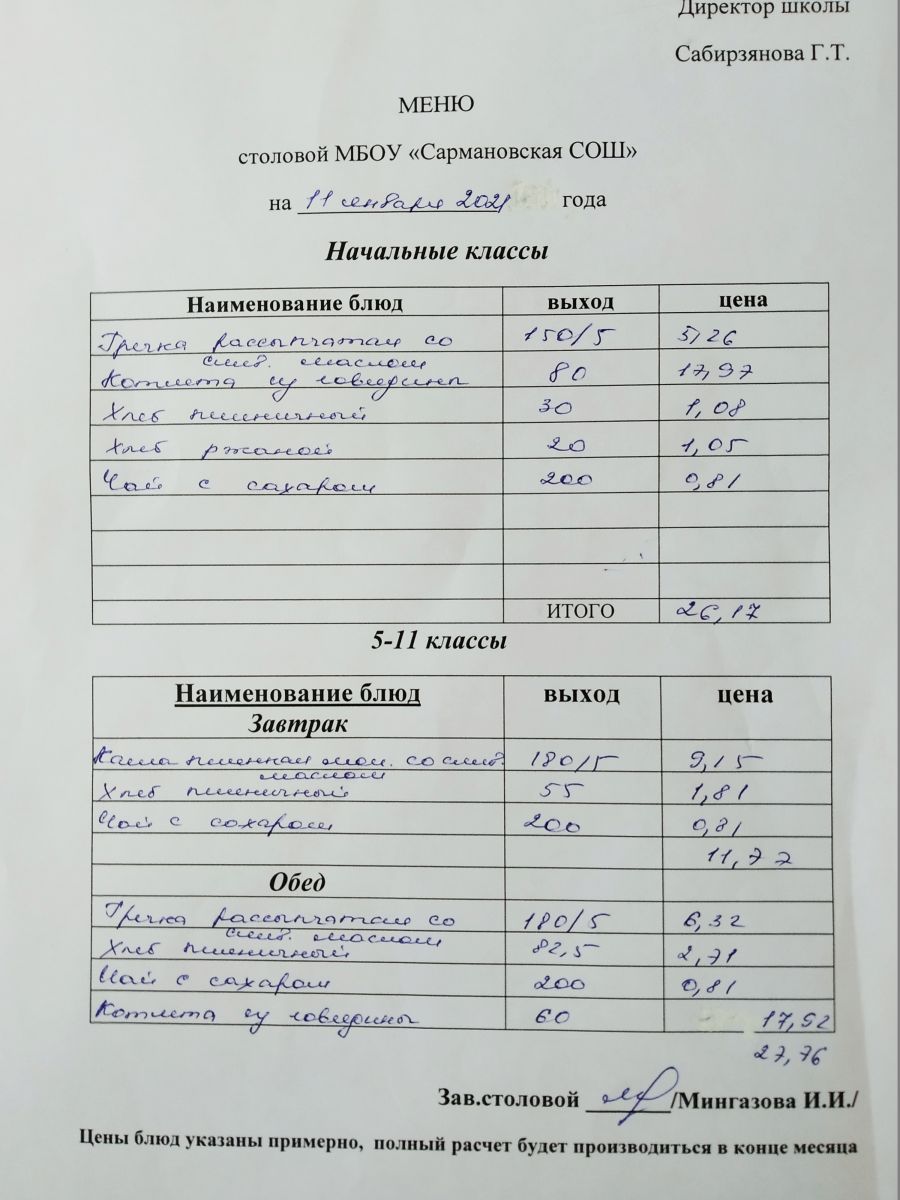 Директор школы
Сабирзянова Г.Т.
МЕНЮ
столовой МБОУ «Сармановская СОШ»
на 11 января 2021 года
Начальные классы
Наименование блюд выход цена
Гречка рассыпчатая со 150/5 5,26
слив. маслом
Котлета из говядины 80 17,97
Хлеб пшеничный 30 1,08
Хлеб ржаной 20 1,05
Чай с сахаром 200 0,81
ИТОГО 26,17
5-11 классы
Наименование блюд выход цена
Завтрак
Каша пшенная мол. со слив. 180/5 9,15
маслом
Хлеб пшеничный 55 1,81
Чай с сахаром 200 0,81
11,77
Обед
Гречка рассыпчатая со 180/5 6,32
слив. маслом
Хлеб пшеничный 82,5 2,71
Чай с сахаром 200 0,81
Котлета из говядины 60 17,92
27,76
Зав.столовой /Мингазова И.И./
Цены блюд указаны примерно, полный расчет будет производиться в конце месяца